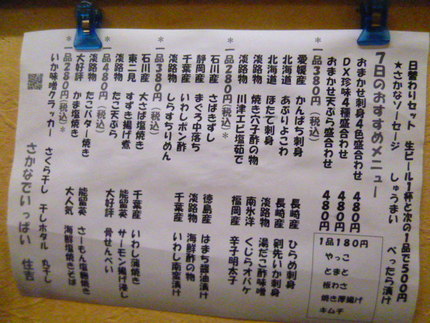 日替わりセット 生ビール1杯と次の1品で500円
★さかなソーセージ しゅうまい べったら漬け
7日のおすすめメニュー
おまかせ刺身4色盛合わせ 480円
DX珍味4種盛合わせ 480円
おまかせ天ぷら盛合わせ 480円
*一品380円(税込)*
愛媛産 かんぱち刺身
北海道 あぶりよこわ
北海道 ほたて刺身
淡路物 焼き穴子酢の物
淡路物 川津エビ塩茹で
長崎産 ひらめ刺身
長崎産 剣先いか刺身
淡路物 湯だこ酢味噌
南氷洋 くじらオバケ
福岡産 辛子明太子
*一品280円(税込)*
石川産 さばきずし
静岡産 まぐろ中落ち
千葉産 いわしポン酢
淡路物 しらすちりめん
徳島産 はまち醤油漬け
淡路物 海藻酢の物
千葉産 いわし南蛮漬け
*一品380円(税込)*
石川産 大さば塩焼き
東二見 すずき揚げ煮
淡路物 たこ天ぷら
千葉産 いわし蒲焼き
能留英 サーモン揚げ浸し
大好評 骨せんべい
*一品480円(税込)*
淡路物 たこバター焼き
大好評 かま塩焼き
能留英 さーもん塩麹焼き
大人気 海鮮塩焼きそば
*一品280円(税込)*
いか味噌クラッカー さくら干し 干しホタル 丸干し
さかなでいっぱい 住吉
1品180円
やっこ
とまと
板わさ
焼き厚揚げ
キムチ